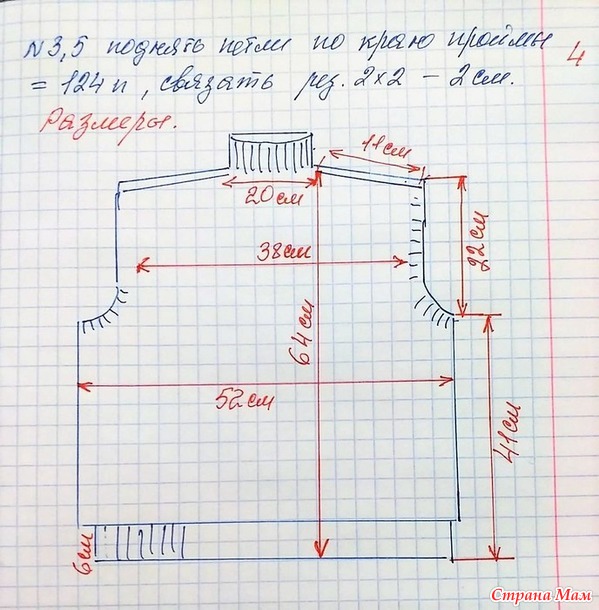 N 3,5 поднять петли по краю проймы
= 124 п, связать рез. 2х2 – 2 см.
4
Размеры.
11 см
20 см
22 см
38 см
64 см
52 см
41 см
6 см
Страна Мам